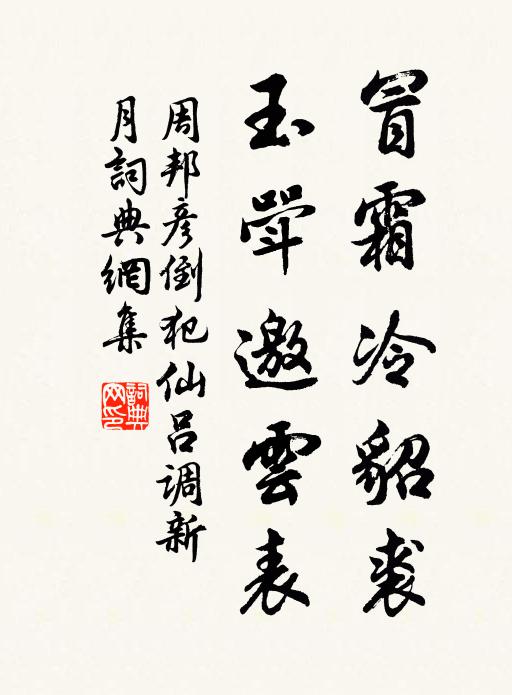 冒霜冷貂裘
玉斝邀雲表
周邦彦倒犯仙吕调新
月詞典網集
詞典
网印